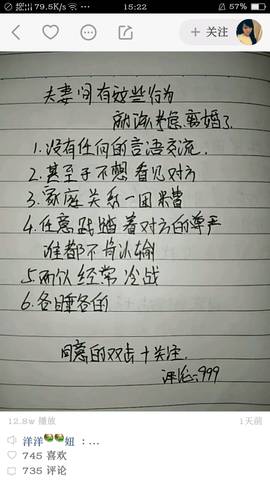 79.5K/s
15:22
57%
+ 关注
夫妻间有这些行为
就该考虑离婚了
1.没有任何的言语交流.
2.甚至于不想看见对方
3.家庭关系一团糟
4.任意践踏着对方的尊严
谁都不肯认输
5.两人经常冷战
6.各睡各的
同意的双击+关注.
评论:999
12.8w 播放
1天前
洋洋 妞 : ...
745 喜欢
735 评论